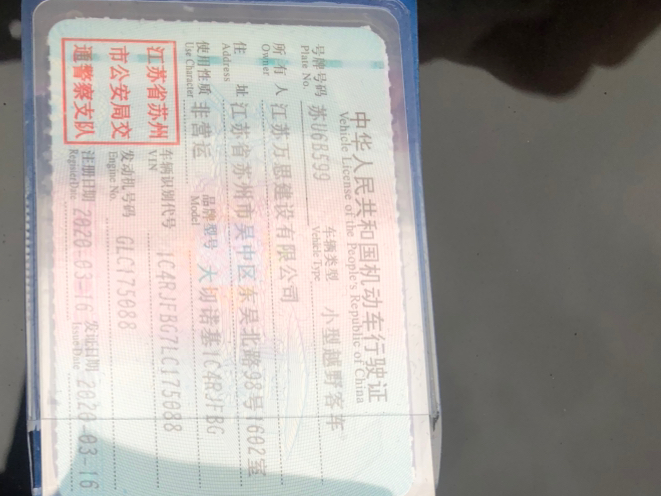 中华人民共和国机动车行驶证
Vehicle License of the People's Republic of China
号牌号码 苏U6B599 车辆类型 小型越野客车
Plate No. Vehicle Type
所有人 江苏万思建设有限公司
Owner
住址 江苏省苏州市吴中区东吴北路98号1602室
Address
使用性质 非营运 品牌型号 大切诺基1C4RJFBG
Use Character Model
车辆识别代号 1C4RJFBG7LC175088
VIN
发动机号码 GLC175088
Engine No.
注册日期 2020-03-16 发证日期 2020-03-16
Register Date Issue Date
江苏省苏州
市公安局交
通警察支队